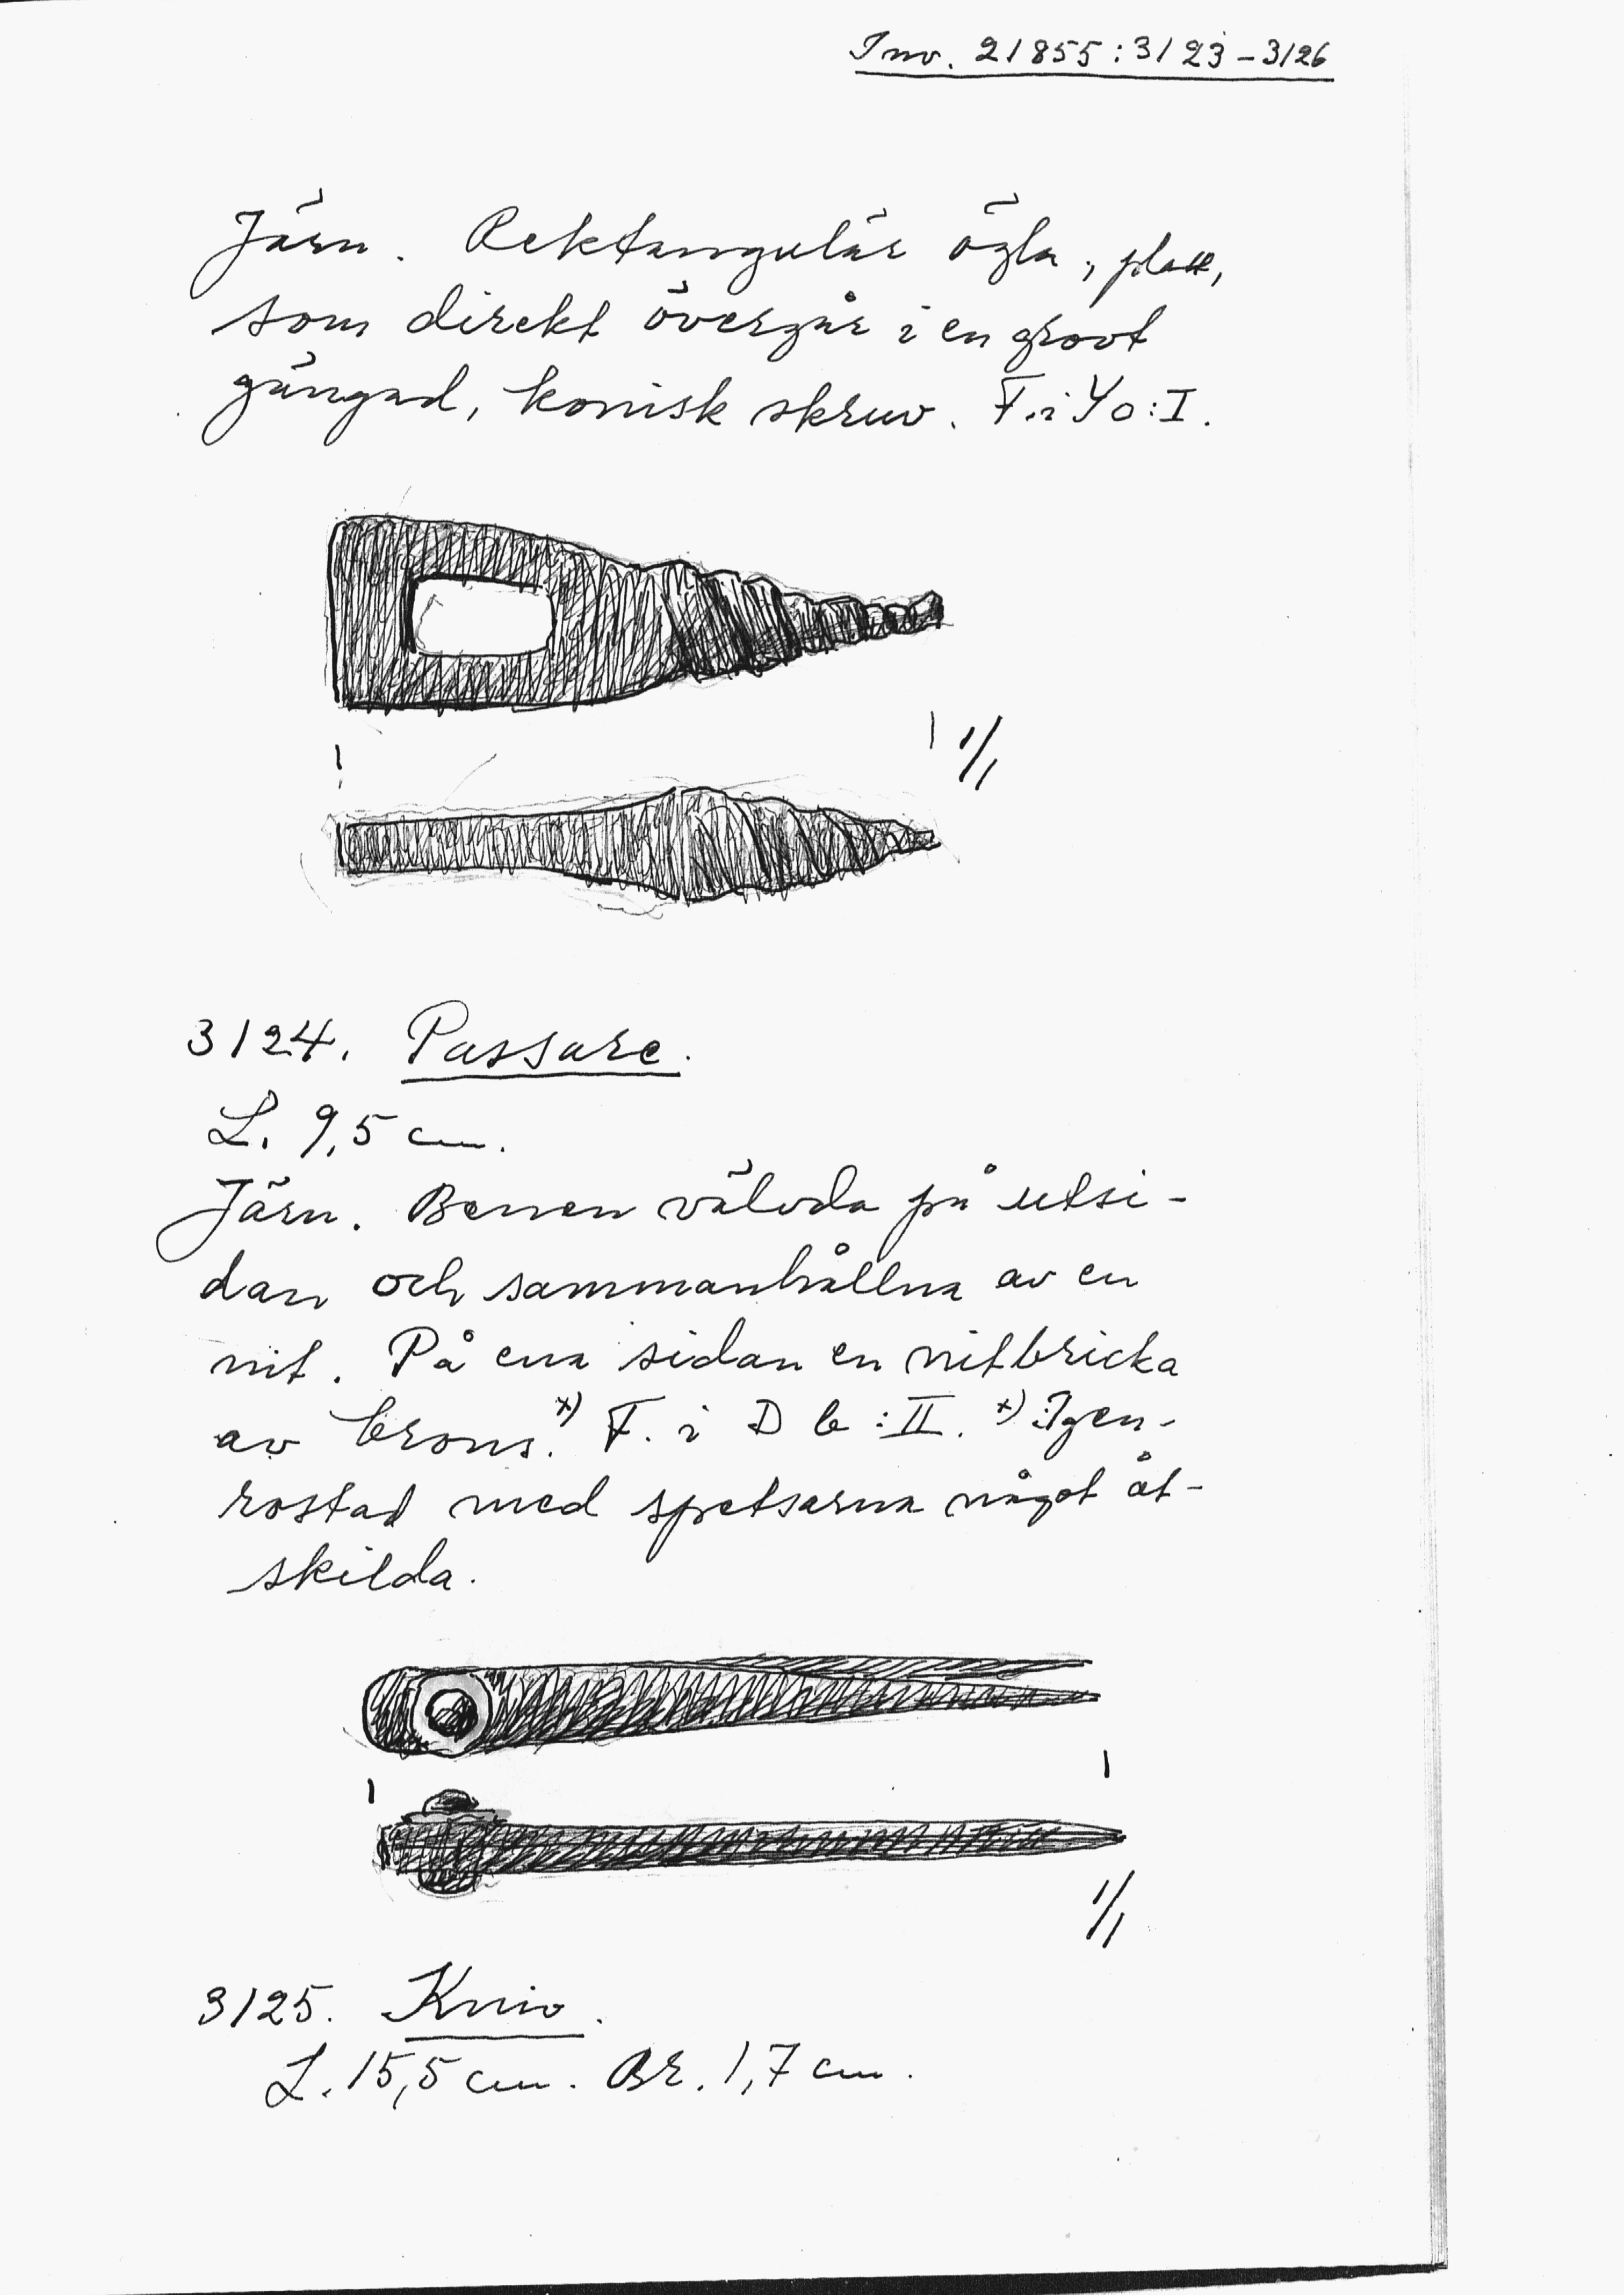 Inv. 21855:3123-3126
Järn. Rektangulär ögla, platt,
som direkt övergår i en grovt
gängad, konisk skruv. F. i Yo:I.
1/1
3124. Passare.
L. 9,5 cm.
Järn. Benen välvda på utsi-
dan och sammanhållna av en
nit. På ena sidan en nitbricka
av brons.x) F. i D b:II. x):Igen-
rostad med spetsarna något åt-
skilda.
1/1
3125. Kniv.
L. 15,5 cm. Br. 1,7 cm.